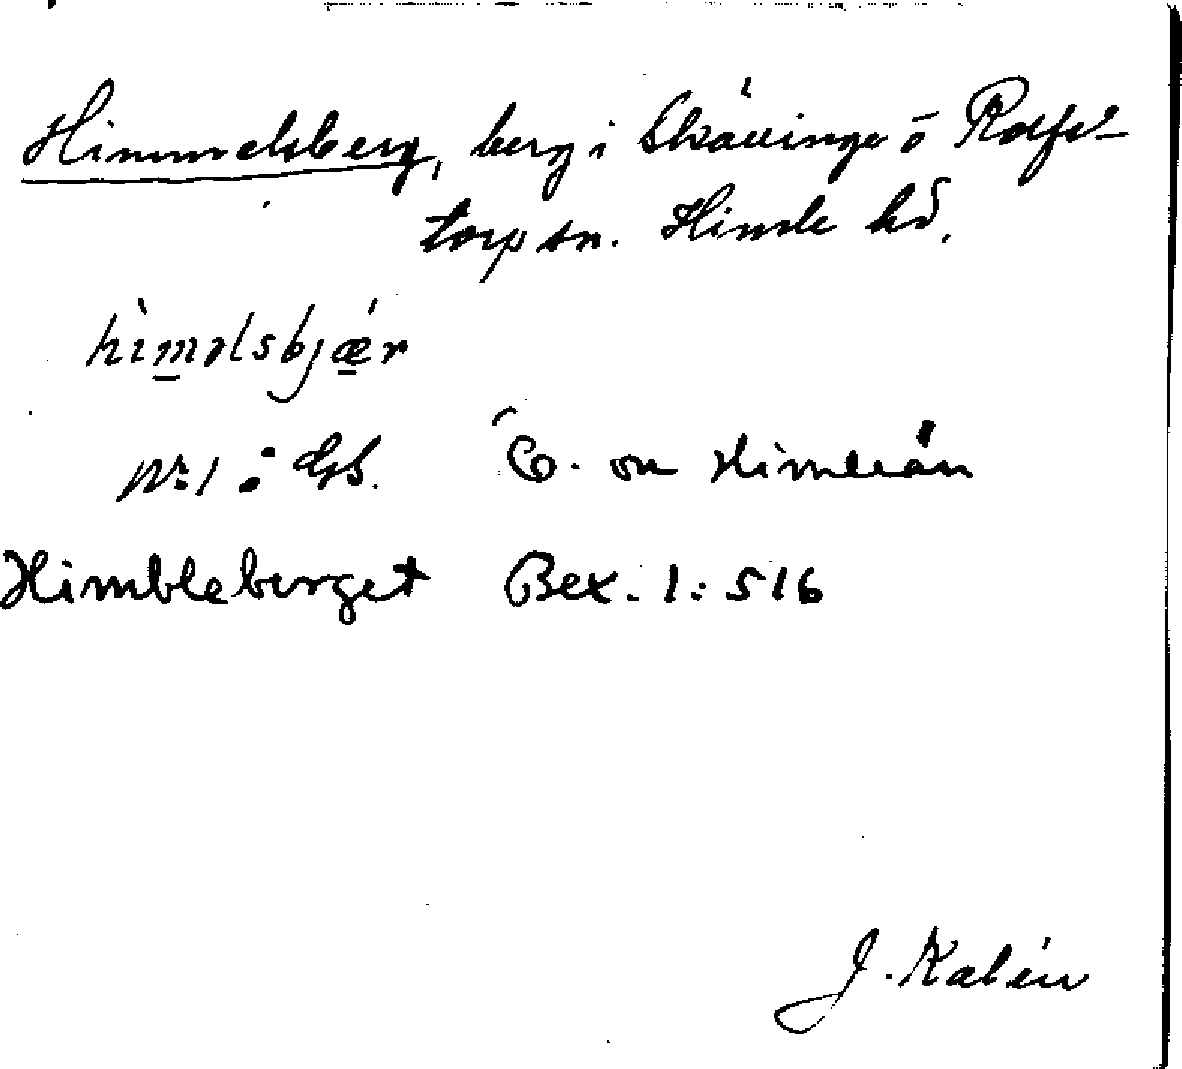 Himmelsberg, berg i Skävinge ö Rolfs-
torp sn. Himle hd.
hìməlsbjǽr
Nr 1 : GS. Ö. om Himleån
Himbleberget Bex. 1: 516
J. Kalén